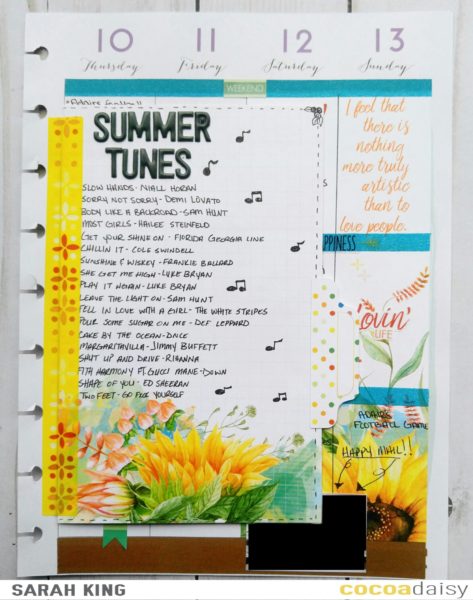 10 11 12 13
Thursday Friday Saturday Sunday
WEEKEND
SUMMER
TUNES
SLOW HANDS - NIALL HORAN
SORRY NOT SORRY - DEMI LOVATO
BODY LIKE A BACKROAD - SAM HUNT
MOST GIRLS - HAILEE STEINFELD
GET YOUR SHINE ON - FLORIDA GEORGIA LINE
CHILLIN IT - COLE SWINDELL
SUNSHINE & WISKEY - FRANKIE BALLARD
SHE GET ME HIGH - LUKE BRYAN
PLAY IT AGAIN - LUKE BRYAN
LEAVE THE LIGHT ON - SAM HUNT
FELL IN LOVE WITH A GIRL - THE WHITE STRIPES
POUR SOME SUGAR ON ME - DEF LEPPARD
CAKE BY THE OCEAN - DNCE
MARGARITAVILLA - JIMMY BUFFETT
SHUT UP AND DRIVE - RIHANNA
FITH HARMONY FT. GUCCI MANE - DOWN
SHAPE OF YOU - ED SHEERAN
TWO FEET - GO FUCK YOURSELF
I feel that
there is
nothing
more truly
artistic
than to
love people.
PPINESS
ovin'
LIFE
ADAM'S
FOOTBALL GAME
HAPPY MAIL!!
SARAH KING
cocoadaisy